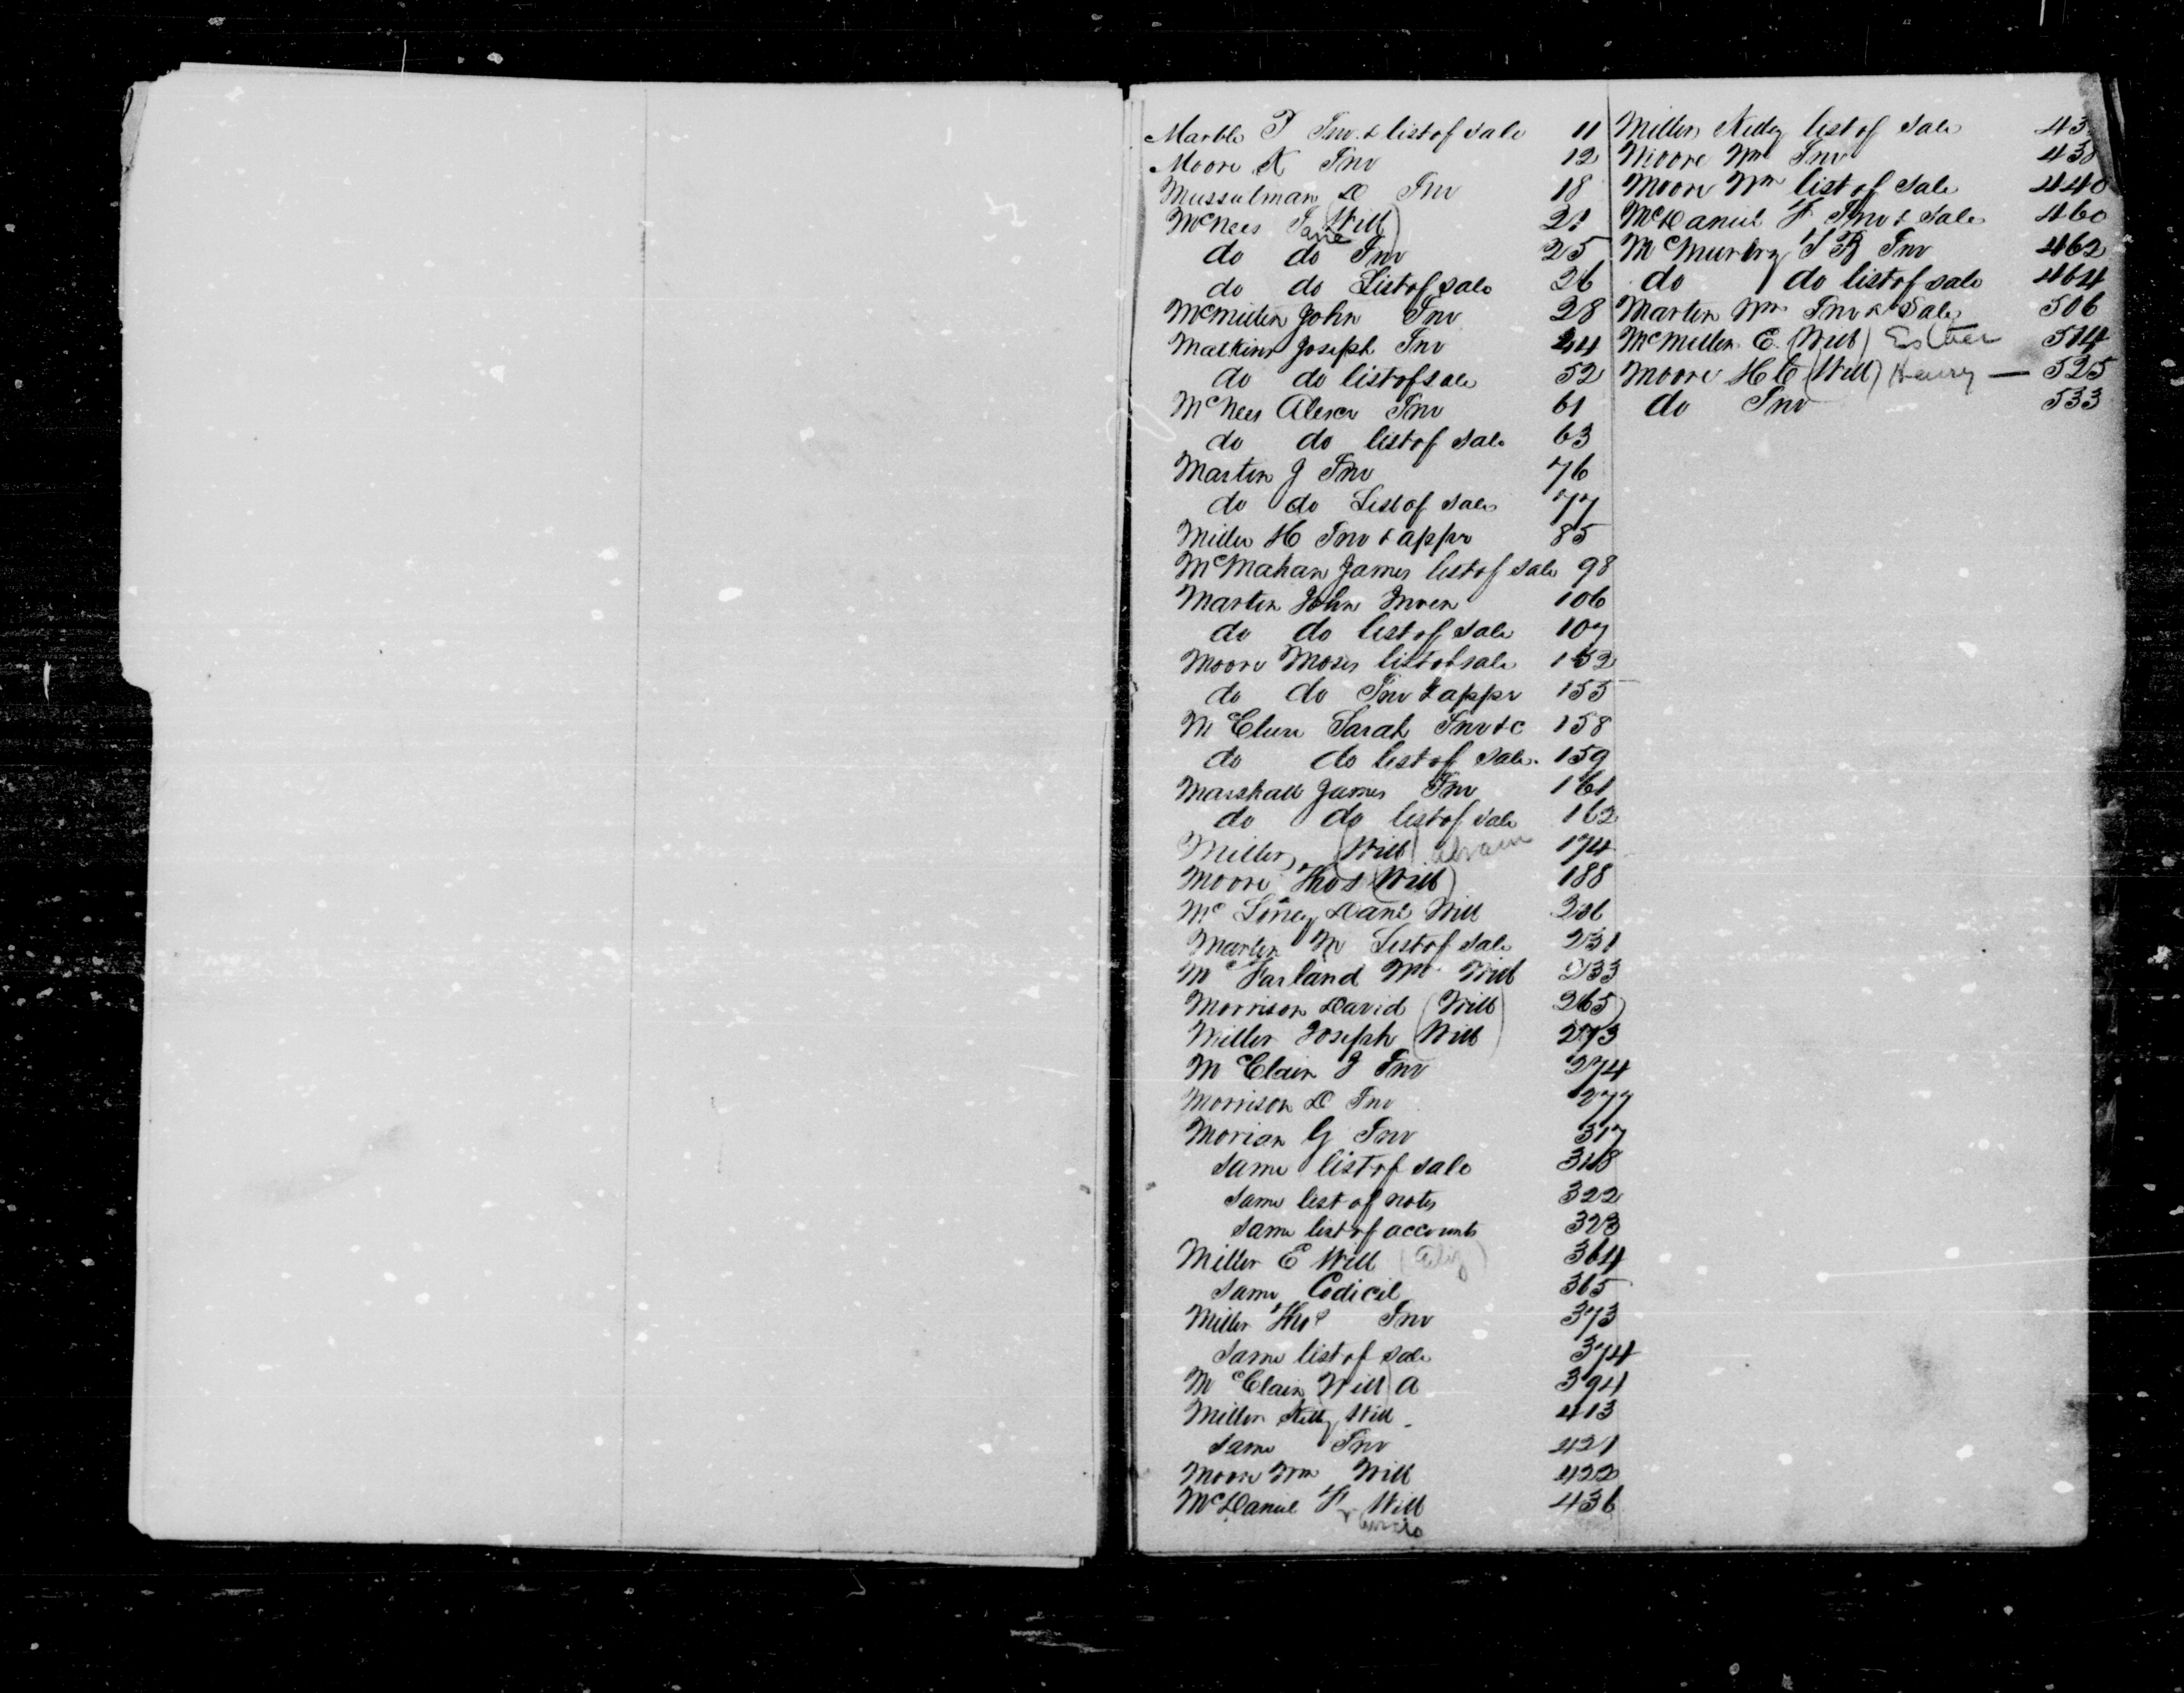 Marble T Inv. & list of sale 11
Moore K Inv 12
Mussulman D Inv 18
McNees Jane (Will) 21
do do Inv 25
do do List of sale 26
McMillen John Inv 28
Malkins Joseph Inv 44
do do list of sale 52
McNees Alexr Inv 61
do do list of sale 63
Martin J Inv 76
do do List of sale 77
Miller H Inv & appr 85
McMahan James list of sale 98
Martin John Inven 106
do do list of sale 107
Moore Moses list of sale 152
do do Inv & appr 155
McClure Sarah Inv &c 158
do do list of sale 159
Marshall James Inv 161
do do list of sale 162
Miller (Will) Abram 174
Moore Thos (Will) 188
Mc Danl Will
Martin M List of sale 231
McFarland Wm Will 233
Morrison David (Will) 265
Miller Joseph (Will) 273
McClain J Inv 274
Morrison D Inv 277
Morian G Inv 317
same list of sale 318
same list of notes 322
same list of accounts 323
Miller E Will (Eliz) 364
same Codicil 365
Miller Thos Inv 373
same list of sale 374
McClain (Will) A 394
Miller Will 413
same Inv 421
Moore Wm Will 422
McDaniel F Will 436
Miller list of sale 43
Moore Wm Inv 438
Moore Wm list of sale 440
McDaniel F Inv & Sale 460
McMurtry S B Inv 462
do do list of sale 464
Martin Wm Inv & Sale 506
McMillen E. (Will) Esther 514
Moore H C (Will) Henry — 525
do Inv 533